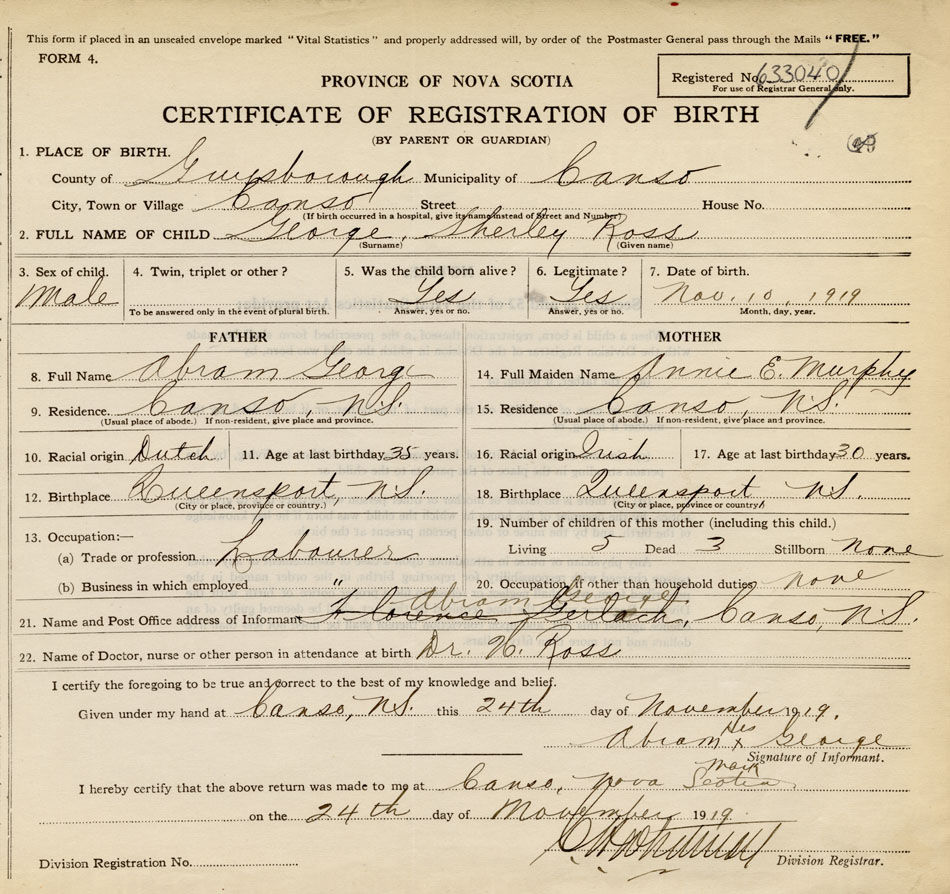 This form if placed in an unsealed envelope marked "Vital Statistics" and properly addressed will, by order of the Postmaster General pass through the Mails "FREE."
FORM 4.
Registered No. 633040
For use of Registrar General only.
PROVINCE OF NOVA SCOTIA
CERTIFICATE OF REGISTRATION OF BIRTH
(BY PARENT OR GUARDIAN)
1. PLACE OF BIRTH.
County of Guysborough Municipality of Canso
City, Town or Village Canso Street House No.
(If birth occurred in a hospital, give its name instead of Street and Number)
2. FULL NAME OF CHILD George, Sherley Ross
(Surname) (Given name)
3. Sex of child. 4. Twin, triplet or other? 5. Was the child born alive? 6. Legitimate? 7. Date of birth.
Male Yes Yes Nov. 10, 1919
To be answered only in the event of plural birth. Answer, yes or no. Answer, yes or no. Month, day, year.
FATHER
8. Full Name Abram George
9. Residence. Canso, N.S.
(Usual place of abode.) If non-resident, give place and province.
10. Racial origin Dutch 11. Age at last birthday 35 years.
12. Birthplace Queensport, N.S.
(City or place, province or country.)
13. Occupation:—
(a) Trade or profession Labourer
(b) Business in which employed "
MOTHER
14. Full Maiden Name Annie E. Murphy
15. Residence Canso, N.S.
(Usual place of abode.) If non-resident, give place and province.
16. Racial origin Irish 17. Age at last birthday 30 years.
18. Birthplace Queensport N.S.
(City or place, province or country)
19. Number of children of this mother (including this child.)
Living 5 Dead 3 Stillborn None
20. Occupation, if other than household duties, none
Abram George
21. Name and Post Office address of Informant Florence Gerlach, Canso, N.S.
22. Name of Doctor, nurse or other person in attendance at birth Dr. H. Ross
I certify the foregoing to be true and correct to the best of my knowledge and belief.
Given under my hand at Canso, N.S. this 24th day of November 1919.
Abram His x George
mark
Signature of Informant.
I hereby certify that the above return was made to me at Canso, Nova Scotia
on the 24th day of November 1919
Division Registration No. Division Registrar.